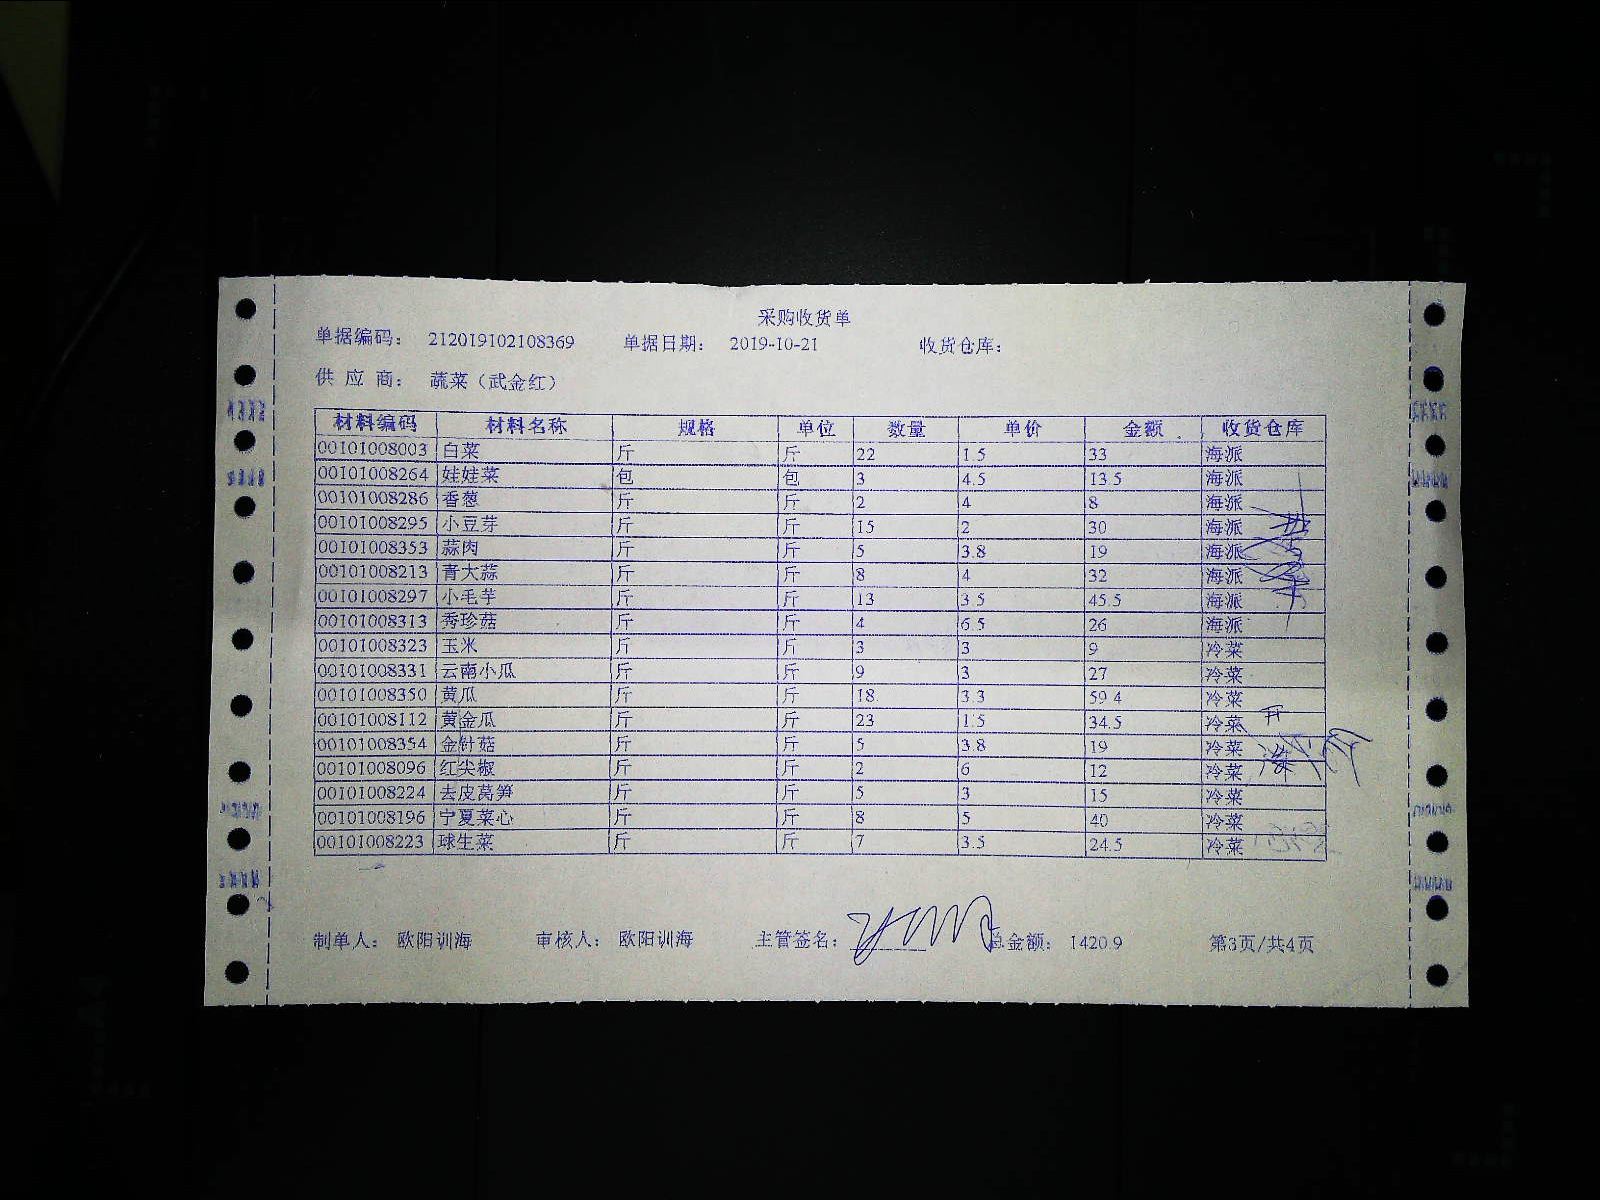 采购收货单
单据编码： 212019102108369 单据日期： 2019-10-21 收货仓库：
供 应 商： 蔬菜（武金红）
材料编码 材料名称 规格 单位 数量 单价 金额 收货仓库
00101008003 白菜 斤 斤 22 1.5 33 海派
00101008264 娃娃菜 包 包 3 4.5 13.5 海派
00101008286 香葱 斤 斤 2 4 8 海派
00101008295 小豆芽 斤 斤 15 2 30 海派
00101008353 蒜肉 斤 斤 5 3.8 19 海派
00101008213 青大蒜 斤 斤 8 4 32 海派
00101008297 小毛芋 斤 斤 13 3.5 45.5 海派
00101008313 秀珍菇 斤 斤 4 6.5 26 海派
00101008323 玉米 斤 斤 3 3 9 冷菜
00101008331 云南小瓜 斤 斤 9 3 27 冷菜
00101008350 黄瓜 斤 斤 18 3.3 59.4 冷菜
00101008112 黄金瓜 斤 斤 23 1.5 34.5 冷菜
00101008354 金针菇 斤 斤 5 3.8 19 冷菜
00101008096 红尖椒 斤 斤 2 6 12 冷菜
00101008224 去皮莴笋 斤 斤 5 3 15 冷菜
00101008196 宁夏菜心 斤 斤 8 5 40 冷菜
00101008223 球生菜 斤 斤 7 3.5 24.5 冷菜
制单人： 欧阳训海 审核人： 欧阳训海 主管签名： 总金额： 1420.9 第3页/共4页